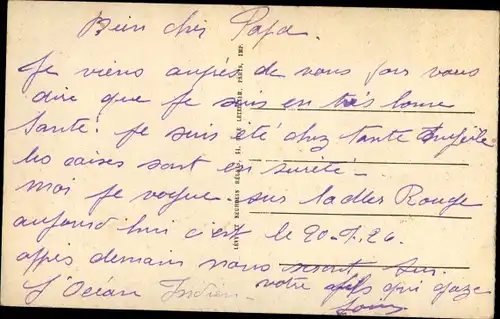 Bien cher Papa.
Je viens auprès de vous pour vous
dire que Je suis en très bonne
Santé. Je suis été chez tante
les caises sont en sureté.
moi Je vogue sur la Mer Rouge
aujourd hui c'est le 20-1-26.
après demain nous seront sur
l'Océan Indien
votre fils qui
LÉVY ET NEURDEIN RÉUNIS, 44, RUE LETELLIER, PARIS, IMP.